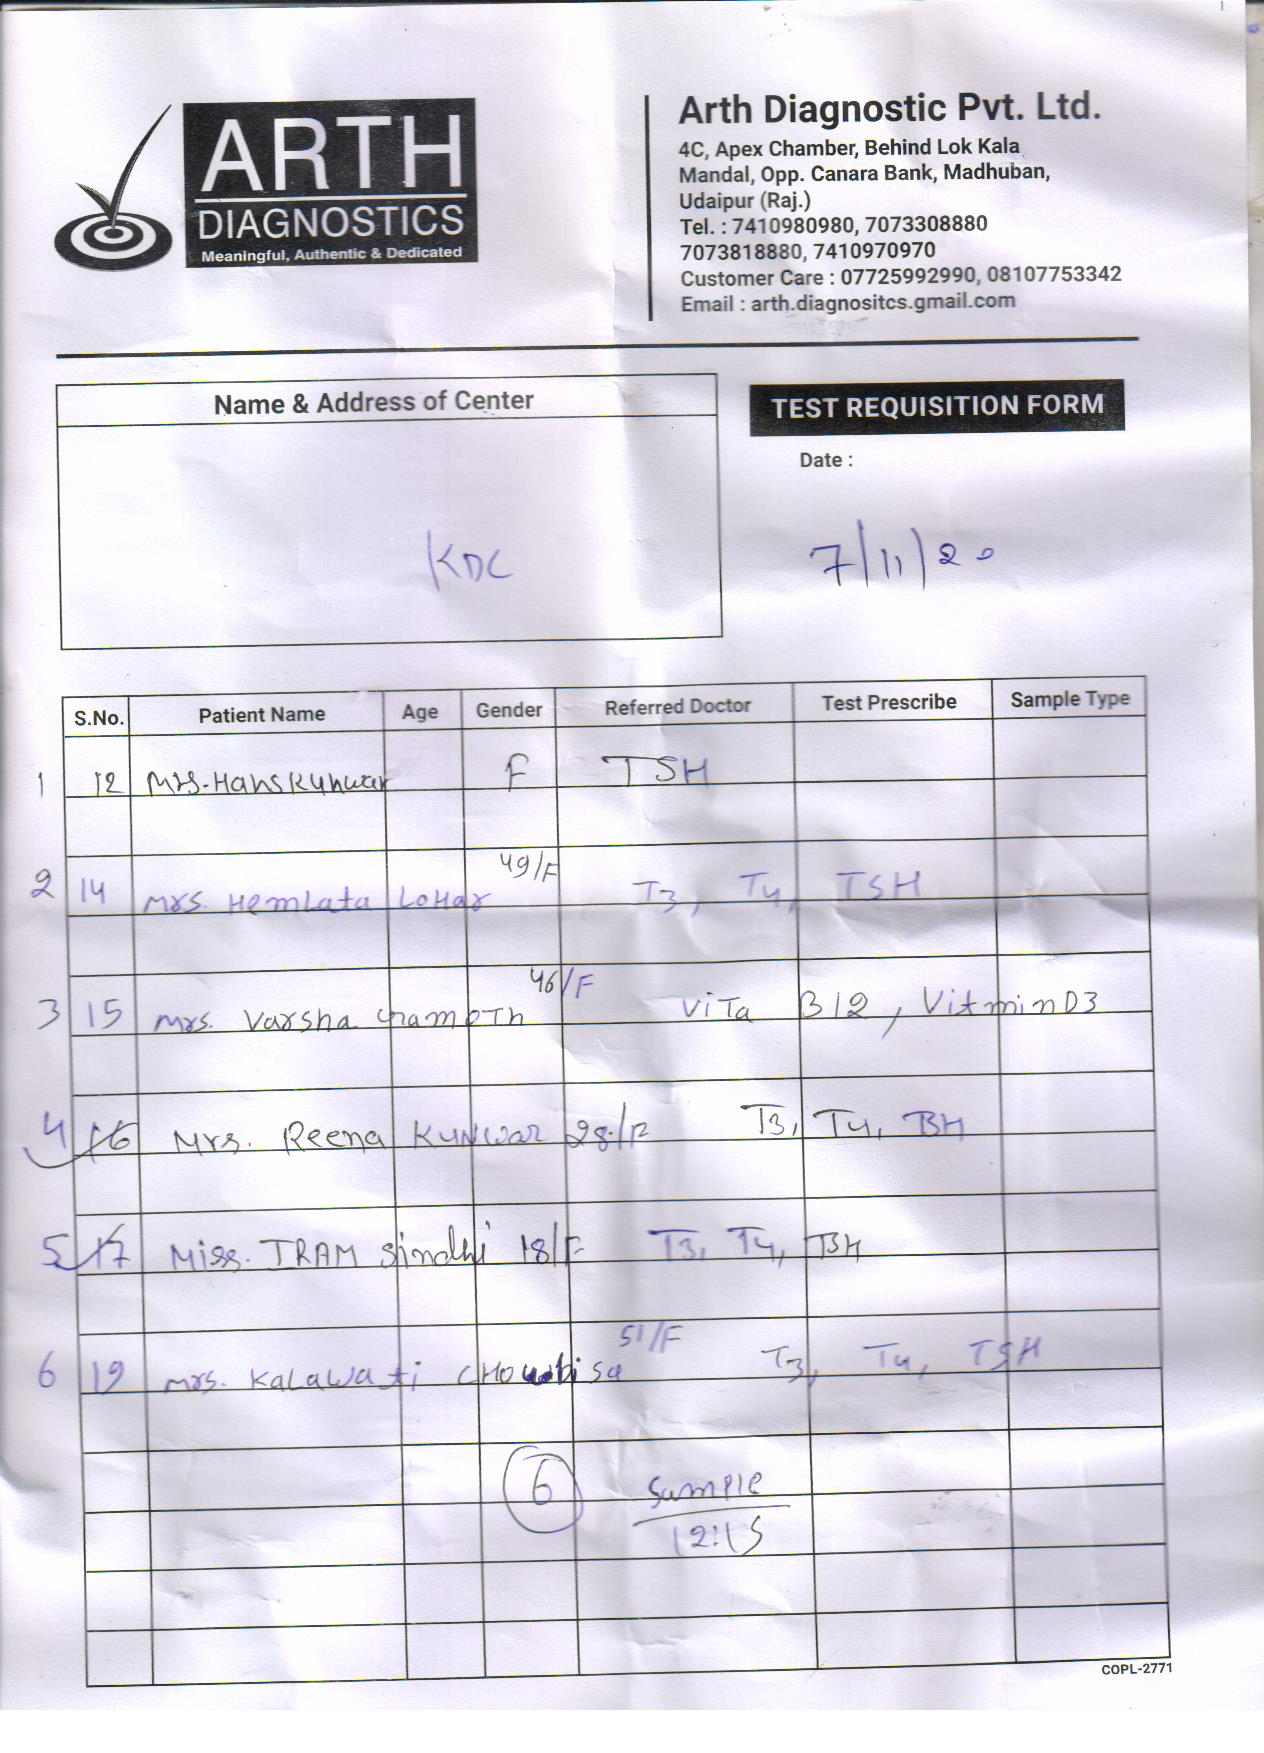 ARTH
DIAGNOSTICS
Meaningful, Authentic & Dedicated
Arth Diagnostic Pvt. Ltd.
4C, Apex Chamber, Behind Lok Kala
Mandal, Opp. Canara Bank, Madhuban,
Udaipur (Raj.)
Tel. : 7410980980, 7073308880
7073818880, 7410970970
Customer Care : 07725992990, 08107753342
Email : arth.diagnositcs.gmail.com
Name & Address of Center
KDC
TEST REQUISITION FORM
Date :
7/11/20
S.No. Patient Name Age Gender Referred Doctor Test Prescribe Sample Type
1 12 Mrs. Hanskunwar F TSH
2 14 Mrs. Hemlata Lohar 49/F T3, T4, TSH
3 15 Mrs. Varsha 46/F Vita B12, VitminD3
4 16 Mrs. Reena Kunwar 28/F T3, T4, TSH
5 17 Miss. IRAM Sindhi 18/F T3, T4, TSH
6 19 Mrs. Kalawati Choubisa 51/F T3, T4, TSH
6 Sample
12:15
COPL-2771